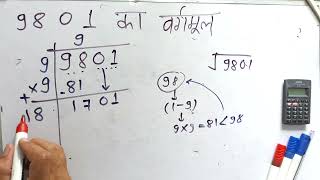 9801 का वर्गमूल
9
9 9801
×9 -81
+18 1701
√9801
98
(1-9)
9×9=81<98